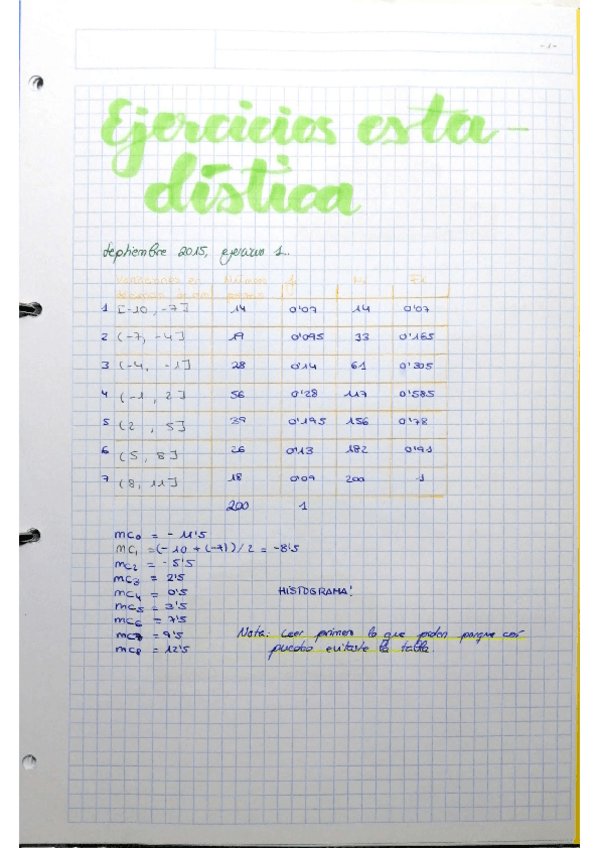 -1-
Ejercicios esta-
dística
Septiembre 2015, ejercicio 1..
fi Ni Fi
1 [-10, -7] 14 0'07 14 0'07
2 (-7, -4] 19 0'095 33 0'165
3 (-4, -1] 28 0'14 61 0'305
4 (-1, 2] 56 0'28 117 0'585
5 (2, 5] 39 0'195 156 0'78
6 (5, 8] 26 0'13 182 0'91
7 (8, 11] 18 0'09 200 1
200 1
mc0 = - 11'5
mc1 = (-10 + (-7))/2 = -8'5
mc2 = - 5'5
mc3 = 2'5
mc4 = 0'5 HISTOGRAMA!
mc5 = 3'5
mc6 = 7'5
mc7 = 9'5 Nota: Leer primero lo que piden porque así
mc8 = 12'5 puedo evitarte la tabla.